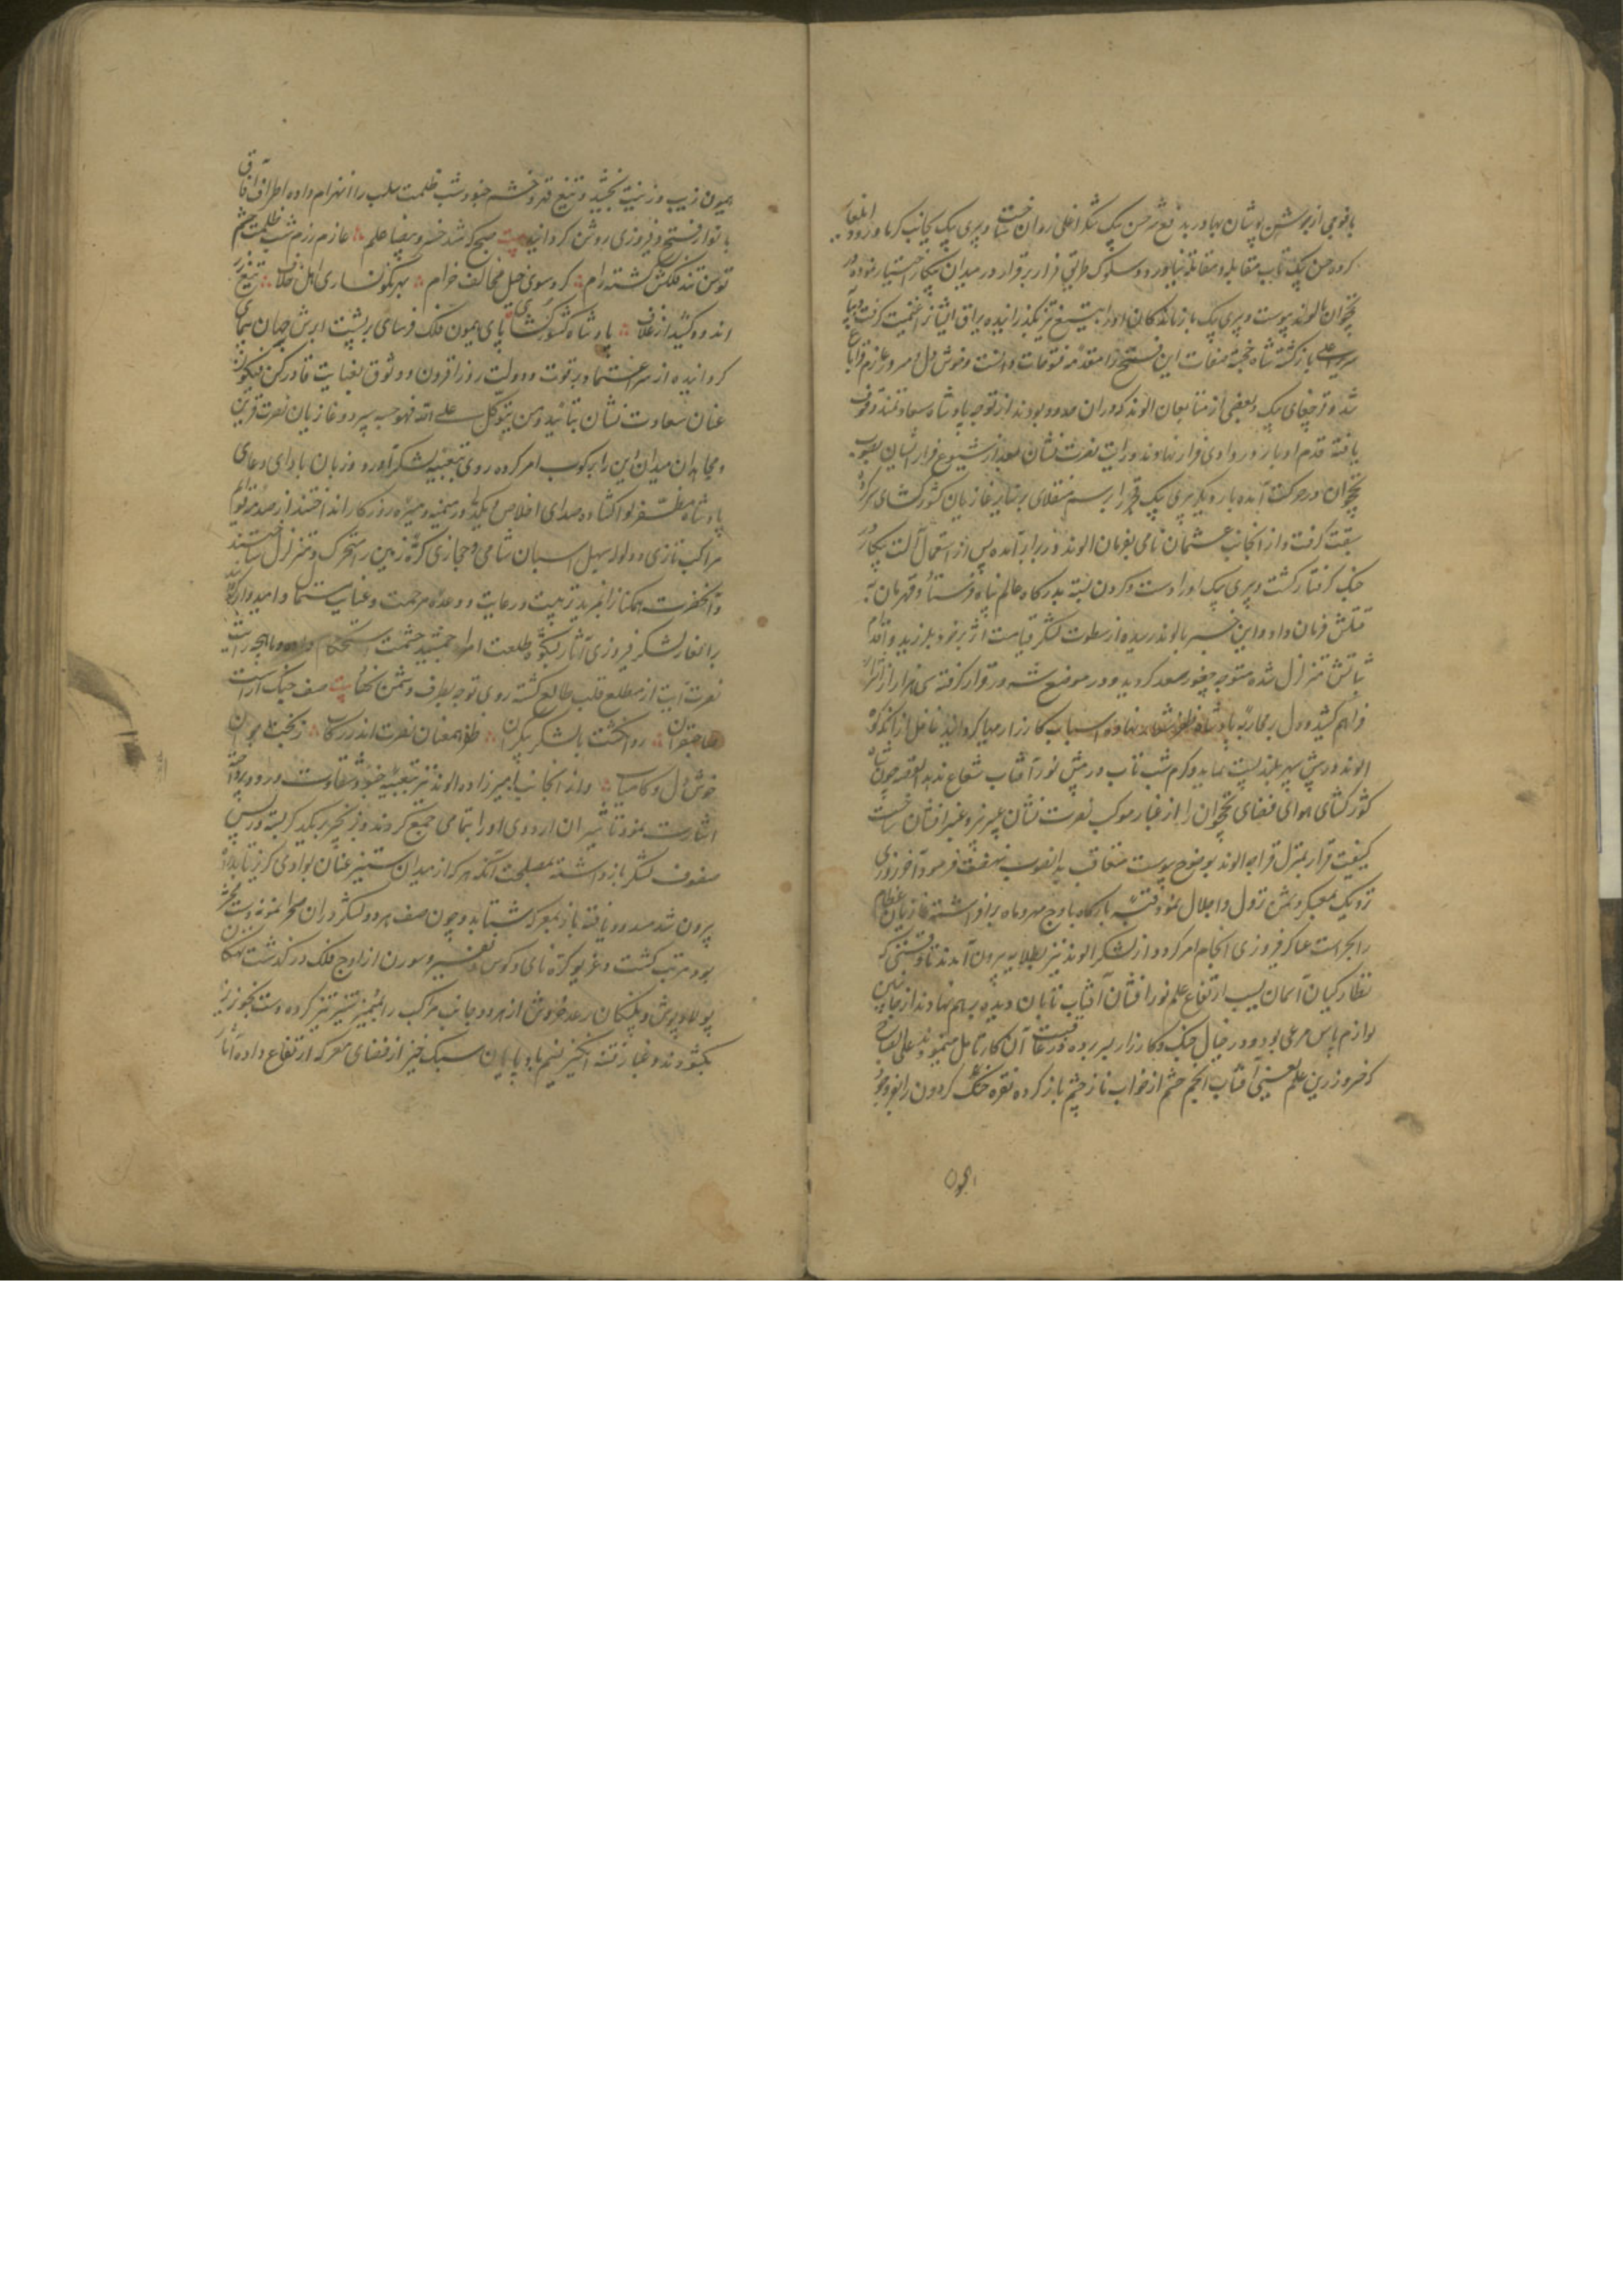 با فوجی از جوشن پوشان بهادر بدفع حسن بیک شکر اغلی روان ساخت و پیری بیک بجانب کرما ورود ایلغار
کرده حسن بیک تاب مقابله و مقاتله نیاورده و سلوک طریق فرار بر قرار در میدان پیکار اختیار نموده در
نخجوان بالوند پیوست و پیری بیک بازماندکان او را به تیغ تیز بگذرانیده یراق ایشانرا غنیمت گرفت و بپایه
سریر اعلی بازگشته شاه خجسته صفات این فتح را مقدمه فتوحات دانست و خوش دل و مسرور عازم قراباغ
شد و قرچغای بیک و بعضی از متابعان الوند که دران حدود بودند از توجه پادشاه سعادتمند وقوف
یافته قدم ادبار در وادی فرار نهادند و رایت نصرت نشان بعد از شیوع فرار ایشان بصوب
نخجوان در حرکت آمده بار دیگر پیری بیک قجر را برسم منقلای بر سایر غازیان کشورکشای
سبقت گرفت و از آنجانب عثمان نامی بفرمان الوند در برابر آمده پس از استعمال آلت پیکار در
جنک گرفتار گشت و پیری بیک او را دست و گردن بسته بدرگاه عالم پناه فرستاد و قهرمان به
قتلش فرمان داد و این خبر بالوند رسیده از سطوت لشکر قیامت اثر بر خود بلرزید و اقدام
ثباتش متزلزل شده متوجه چخور سعد گردید و در موضع شرور قرار گرفته سی هزار از اتراک
فراهم کشید و دل بر محاربه پادشاه ظفر شعار نهاده اسباب کارزار مهیا گردانید غافل از آنکه کوه
الوند در پیش سپهر بلند پست نماید و کرم شب تاب در پیش نور آفتاب شعاع ندهد القصه چون شاه
کشورکشای هوای فضای نخجوان را از غبار موکب نصرت نشان عبیر بیز و عنبر افشان ساخت
کیفیت قرار بمنزل قرار الوند بوضوح پیوست متعاقب بدانصوب نهضت فرمود و آخر روزی
نزدیک بمعسکر دشمن نزول و اجلال نمود و قبه بارگاه باوج مهر و ماه برافراشته غازیان عظام
را بحراست عساکر فیروزی انجام امر کرد و از لشکر الوند نیز بطلایه بیرون آمدند تا وقتی که
نظارکیان آسمان بسبب ارتفاع علم نور افشان آفتاب تابان دیده بر هم نهادند از جانبین
لوازم پاس مرعی بود و در خیال جنک و کارزار بسر برده در عاقبت آن کار تامل مینمودند علی الصباح
که خسرو زرین علم یعنی آفتاب انجم حشم از خواب ناز چشم باز کرده نقره خنک گردون را بفر وجود
همیون
همیون زیب و زینت بخشید و بتیغ قهر و خشم جنود شب ظلمت سلب را انهزام داده اطراف آفاق
بانوار فتح و فیروزی روشن گردانید بیت صبح که شد خسرو بیضا علم عازم رزم شب ظلمت حشم
توسن تند فلکش گشته رام کرد سوی خیل مخالف خرام بهر نکونساری اهل خلاف تیغ زر
اندود کشید از غلاف پادشاه کشورکشای پای همیون فلک فرسای بر پشت ابرش جهان پیمای
گردانیده از سر اعتماد بر قوت و دولت روز افزون و وثوق بعنایت قادر کن فیکون
عنان سعادت نشان بتائید و من یتوکل علی الله فهو حسبه سپرد و غازیان نصرت قرین
و مجاهدان میدان این را برکوب امر کرده روی بتعبیه لشکر آورد و زبان بادای دعای
پادشاه مظفر لوا کشاده صدای اخلاص و یکدلی در میمنه و میسره روزکار انداختند از صدمه قوایم
مراکب تازی و ولوله صهیل اسبان شامی و حجازی کره زمین را متحرک و متزلزل ساختند
و آنحضرت همکنانرا بمزید تربیت و رعایت و وعده مرحمت و عنایت مستمال و امیدوار گردانید
برانغار لشکر فیروزی آثار بشکوه طلعت امرا جمشید حشمت استحکام داده و ماهچه رایت
نصرت آیت از مطلع قلب طالع گشته روی توجه بطرف دشمن نهاد بیت صف جنک آراست
صاحبقران روان گشت با لشکر بیکران ظفر همعنان نصرت اندر رکاب ز بخت همیون
خوش دل و کامیاب و از آنجانب امیرزاده الوند نیز بتعبیه جنود شقاوت ورود پرداخته
اشارت نمود تا شتران اردوی او را بتمامی جمع کردند و بزنجیر بریکدیگر بسته در پس
صفوف لشکر بازداشته بمصلحت آنکه هر که از میدان ستیز عنان بوادی گریز تابد راه
بیرون شد مسدود یافته باز بمعرکه شتابد و چون صف هر دو لشکر دران صحرا نمونه دشت محشر
بود مرتب گشت و غریو کره نای و کوس و نفیر و سورن از اوج فلک در گذشت نهنکان
پولاد پوش و پلنکان رعد خروش از هر دو جانب مراکب را بمهمیز ستیز تیز کرده دست بخونریز
بکشودند و غبار فتنه انکیز نسیم باد پایان سبک خیز از فضای معرکه ارتفاع داده آثار